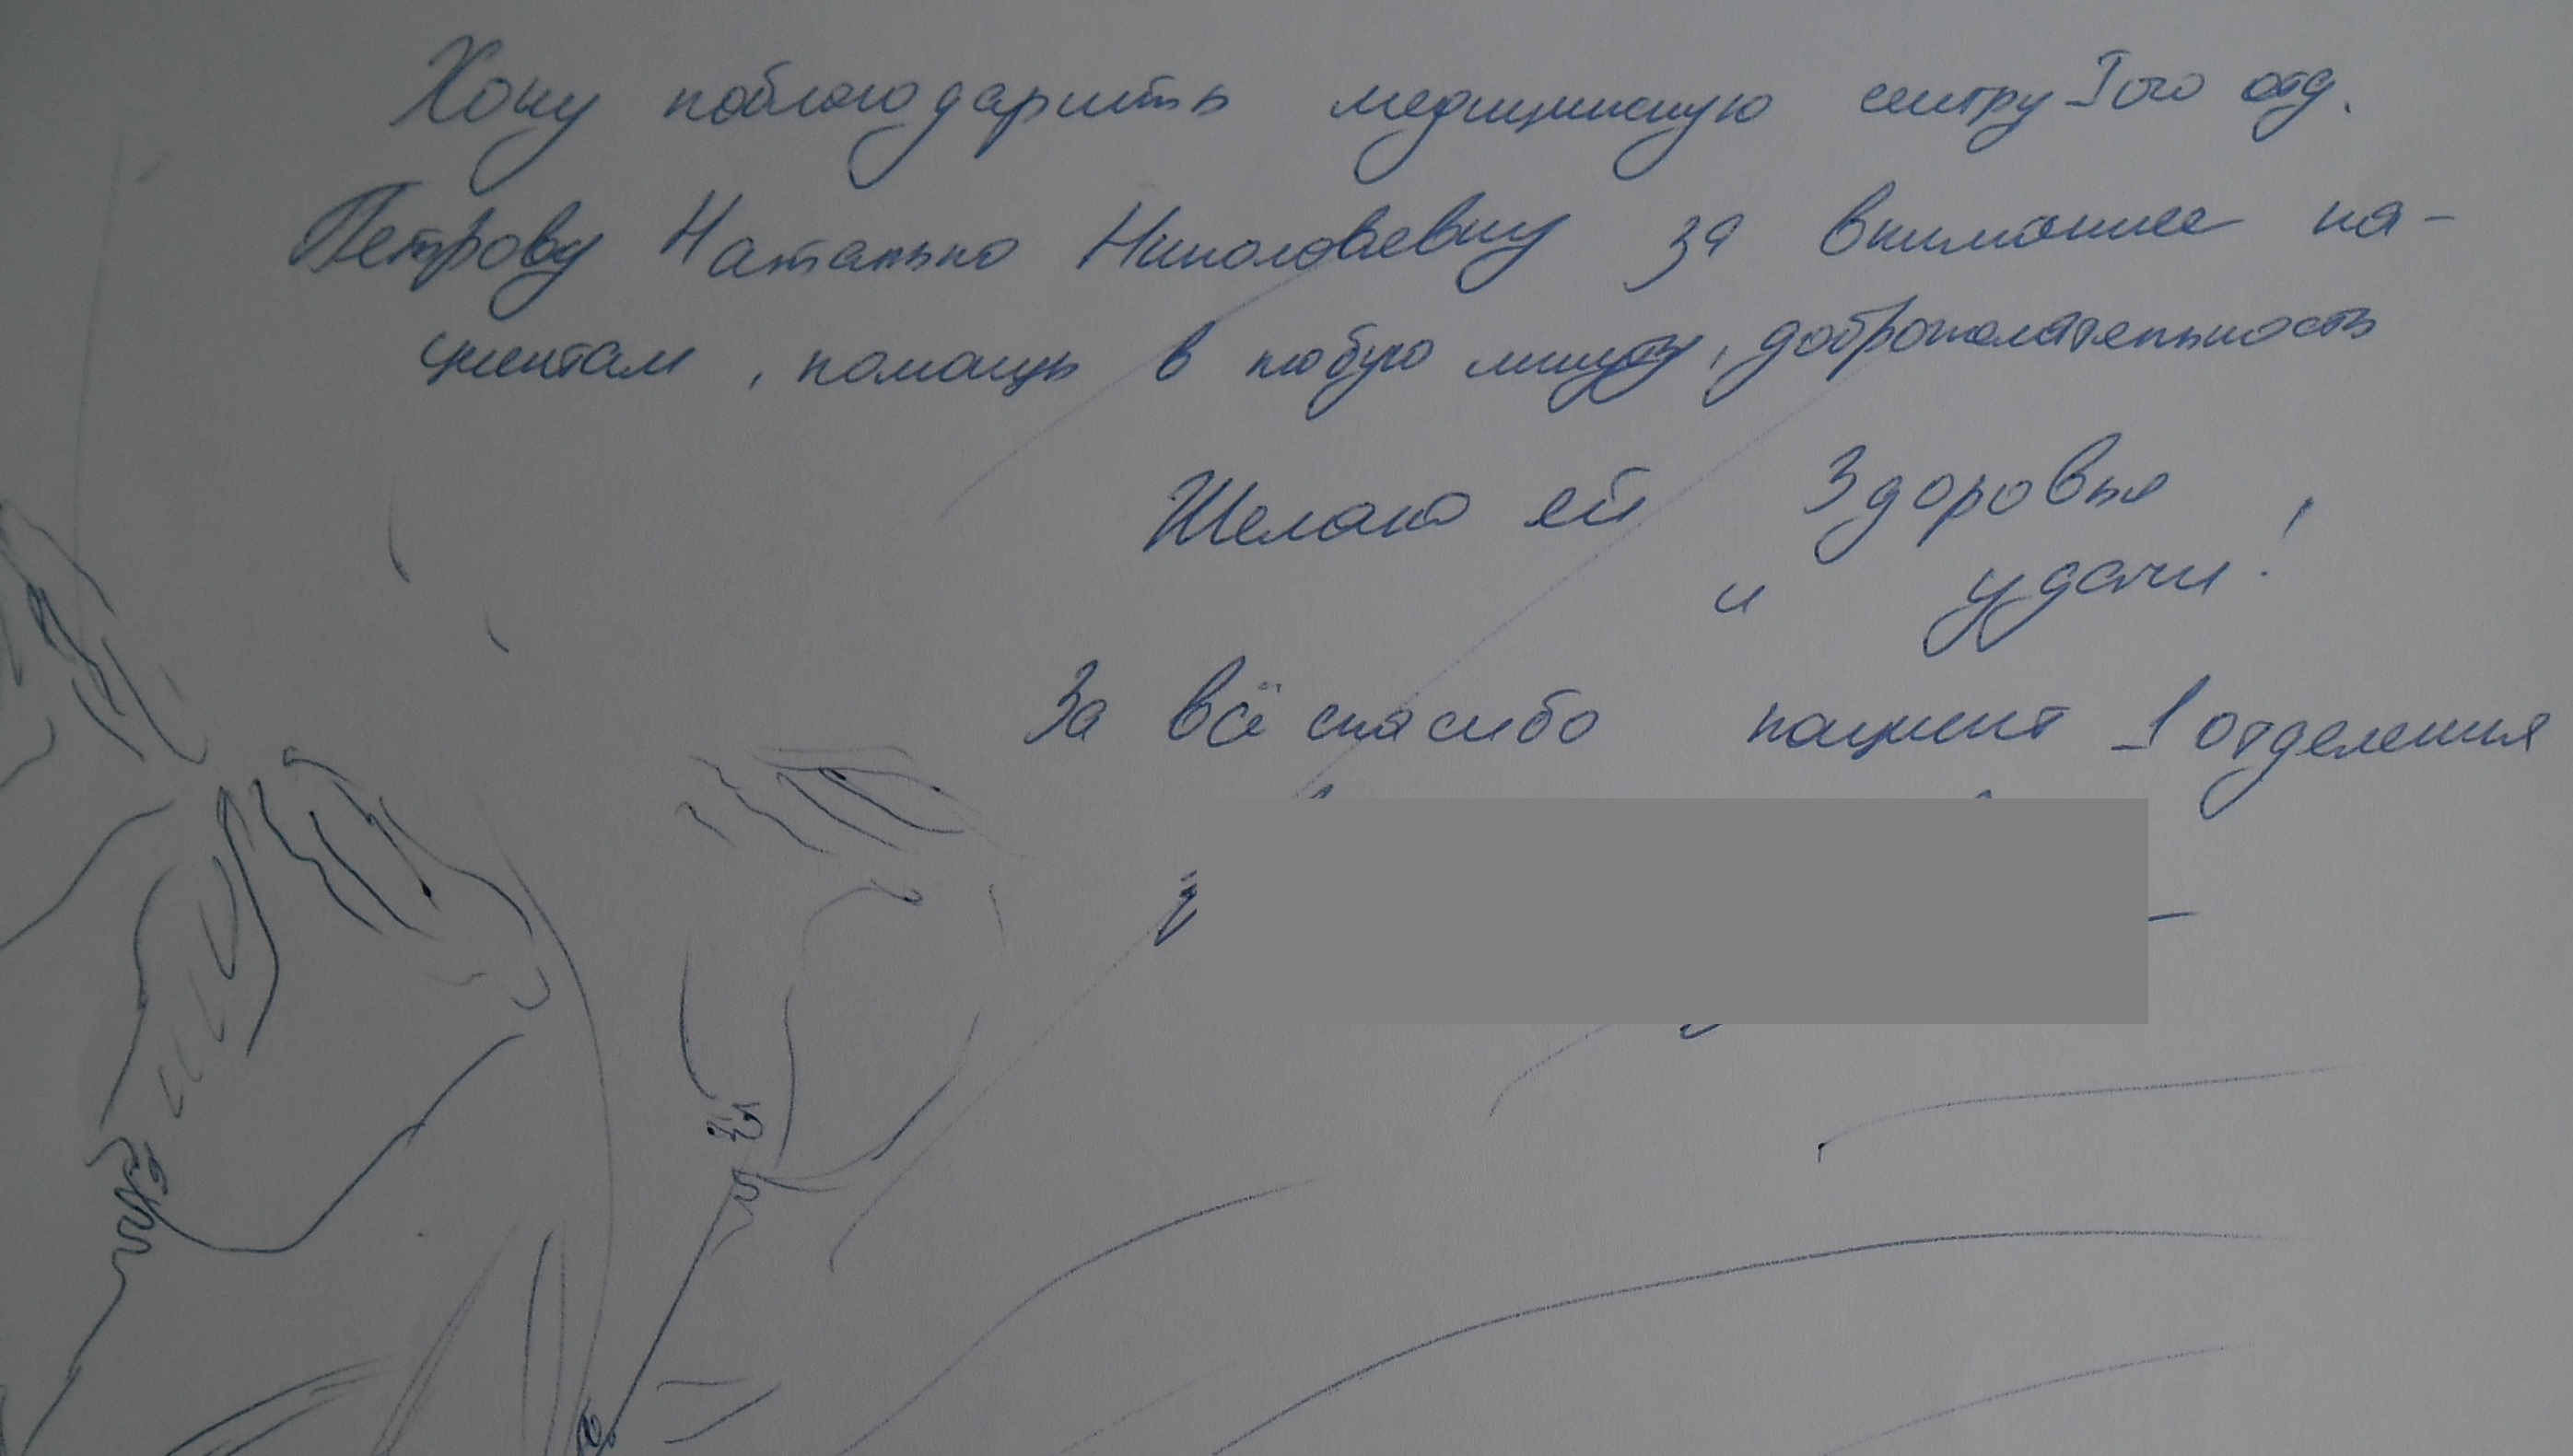 Хочу поблагодарить медицинскую сестру I ого отд.
Петрову Наталью Николаевну за внимание па-
циентам, помощь в любую минуту, доброжелательность
Желаю ей Здоровья
и удачи!
За всё спасибо пациент 1 отделения